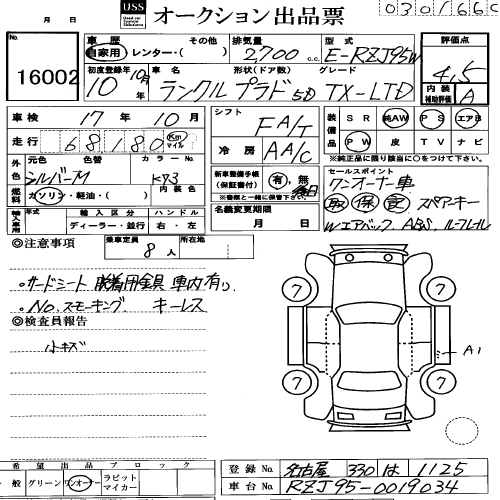 月 日 USS Used car System Solutions オークション出品票 0301660
No. 16002
車歴 その他 排気量 型式 評価点
自家用 レンター・( ) 2700 c.c. E-RZJ95W 4.5
初度登録年 車名 形状(ドア数) グレード 内装 補助評価 A
10年 10月 ランクルプラド 5D TX-LTD
車検 17年 10月 シフト FA/T 装備品 SR 純AW PS エアB
走行 68180 Km マイル 冷房 AA/C PW 皮 TV ナビ
※純正品に限り該当に○をつけて下さい
外色 元色 色替 カラーNo. 新車整備手帳(保証書付) 有、無 セールスポイント
シルバーM K93 ワンオーナー車
燃料 ガソリン・軽油・( ) 内装色 取 保 記 スペアキー
輸入車用 年式 輸入区分 ハンドル 名義変更期限 Wエアバック、ABS、ルーフレール
ディーラー・並行 右・左 月 日
◎注意事項 乗車定員 8人 所在地
サードシート 脱着用金具 車内有り
No.スモーキング キーレス
◎検査員報告
小キズ
7 7
A1
7 7
希望出品ブロック
一般 グリーン ワンオーナー ラビットマイカー
登録No. 名古屋 330 は 1125
車台No. RZJ95-0019034